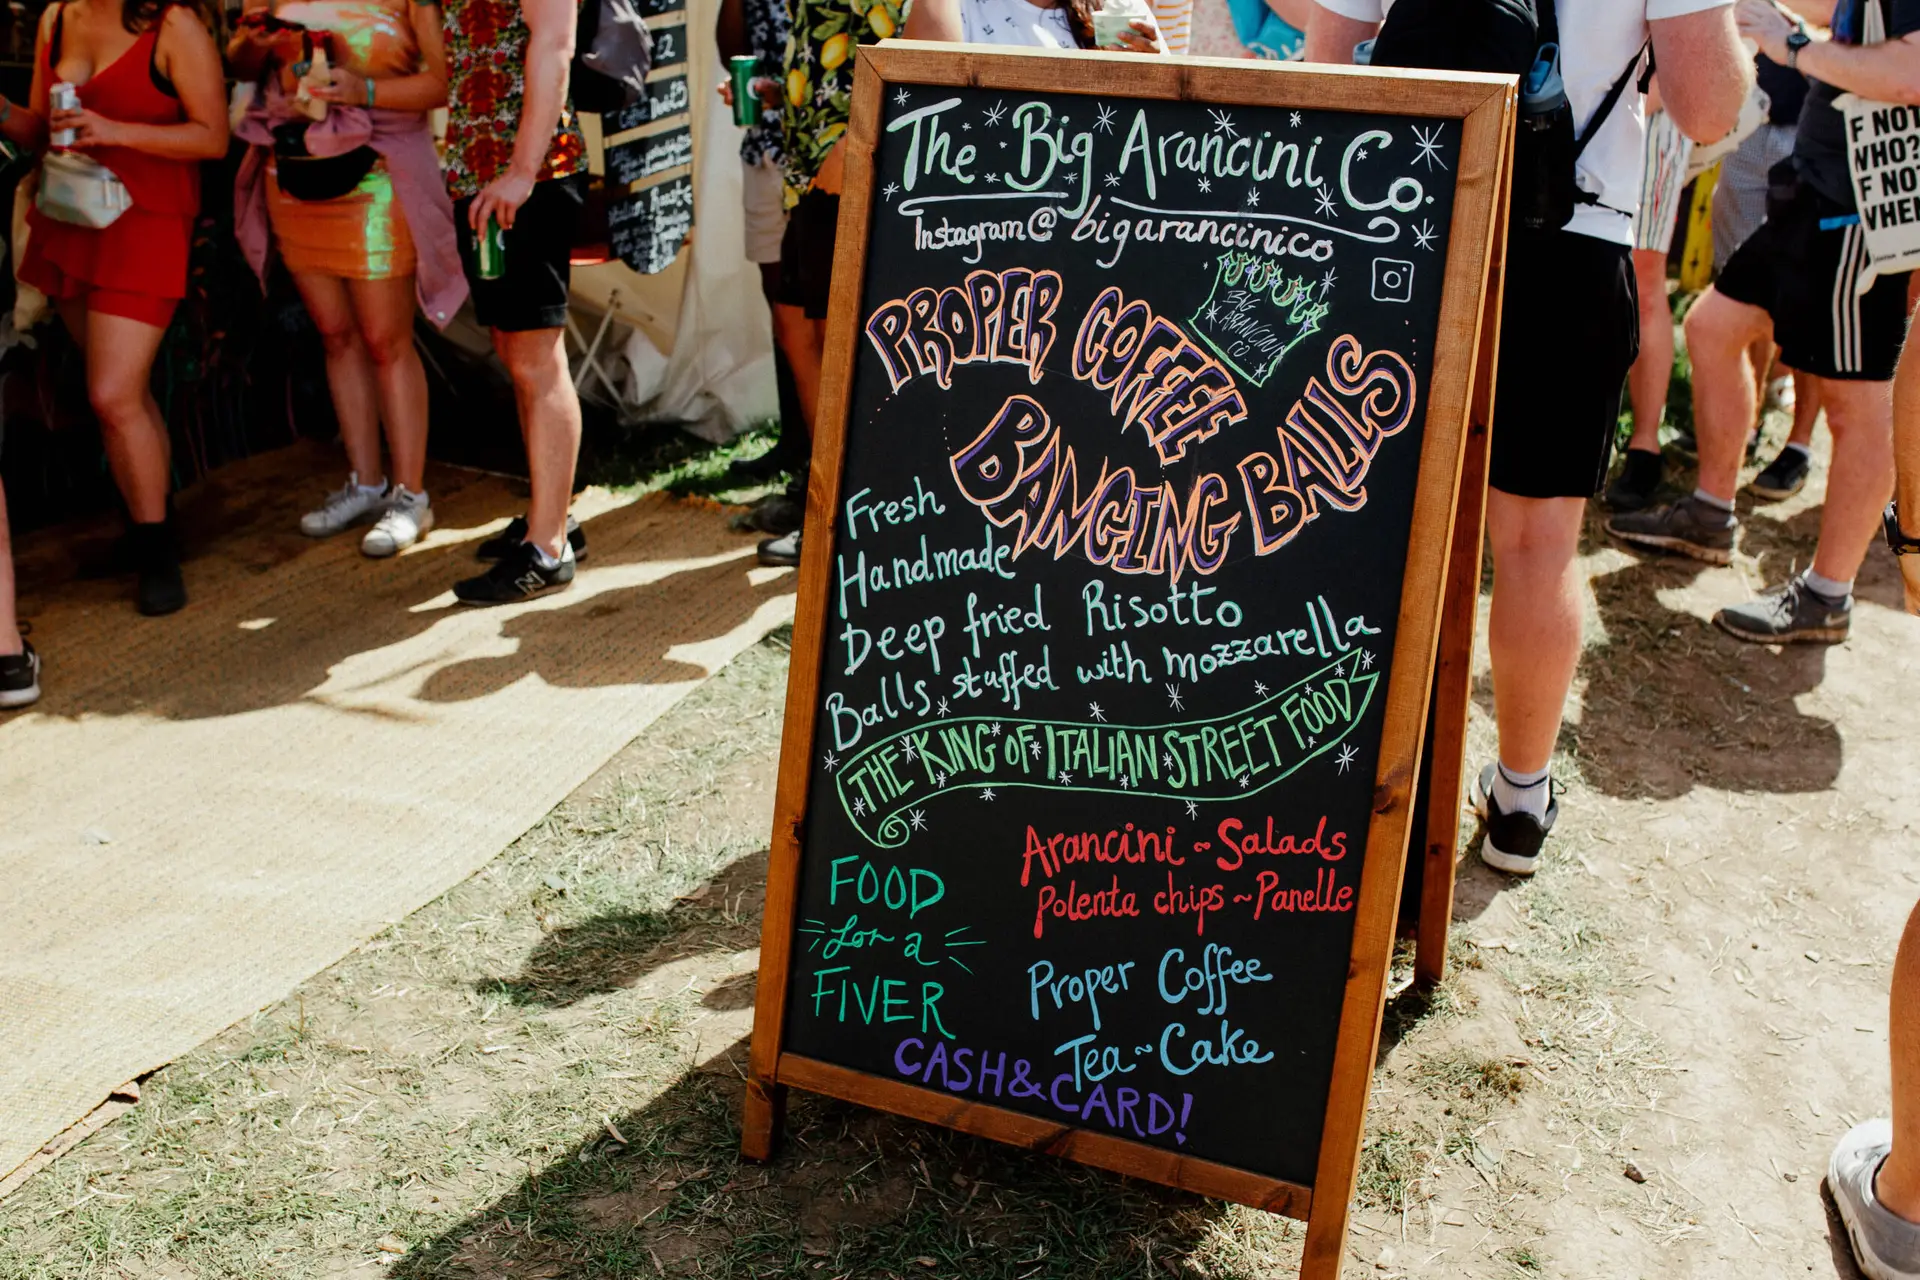 The Big Arancini Co.
Instagram@bigarancinico
BIG
ARANCINI
CO
PROPER COFFEE
BANGING BALLS
Fresh
Handmade
Deep fried Risotto
Balls stuffed with mozzarella
THE KING OF ITALIAN STREET FOOD
Arancini ~ Salads
Polenta chips ~ Panelle
FOOD
for a
FIVER
Proper Coffee
Tea ~ Cake
CASH & CARD!
F NOT
WHO?
F NOT
WHEN
N